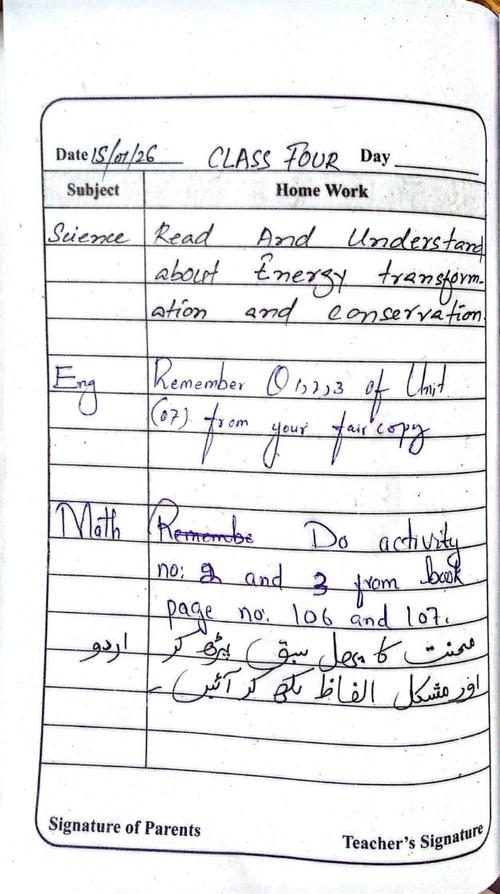 Date 15/01/26 CLASS FOUR Day
Subject Home Work
Science Read And Understand
about Energy transform-
ation and conservation.
Eng Remember Q 1,2,3 of Unit
(07) from your fair copy
Math Remembe Do activity
no: 2 and 3 from book
page no: 106 and 107.
اردو محنت کا پھل سبق پڑھ کر
اور مشکل الفاظ لکھ کر آئیں۔
Signature of Parents
Teacher's Signature